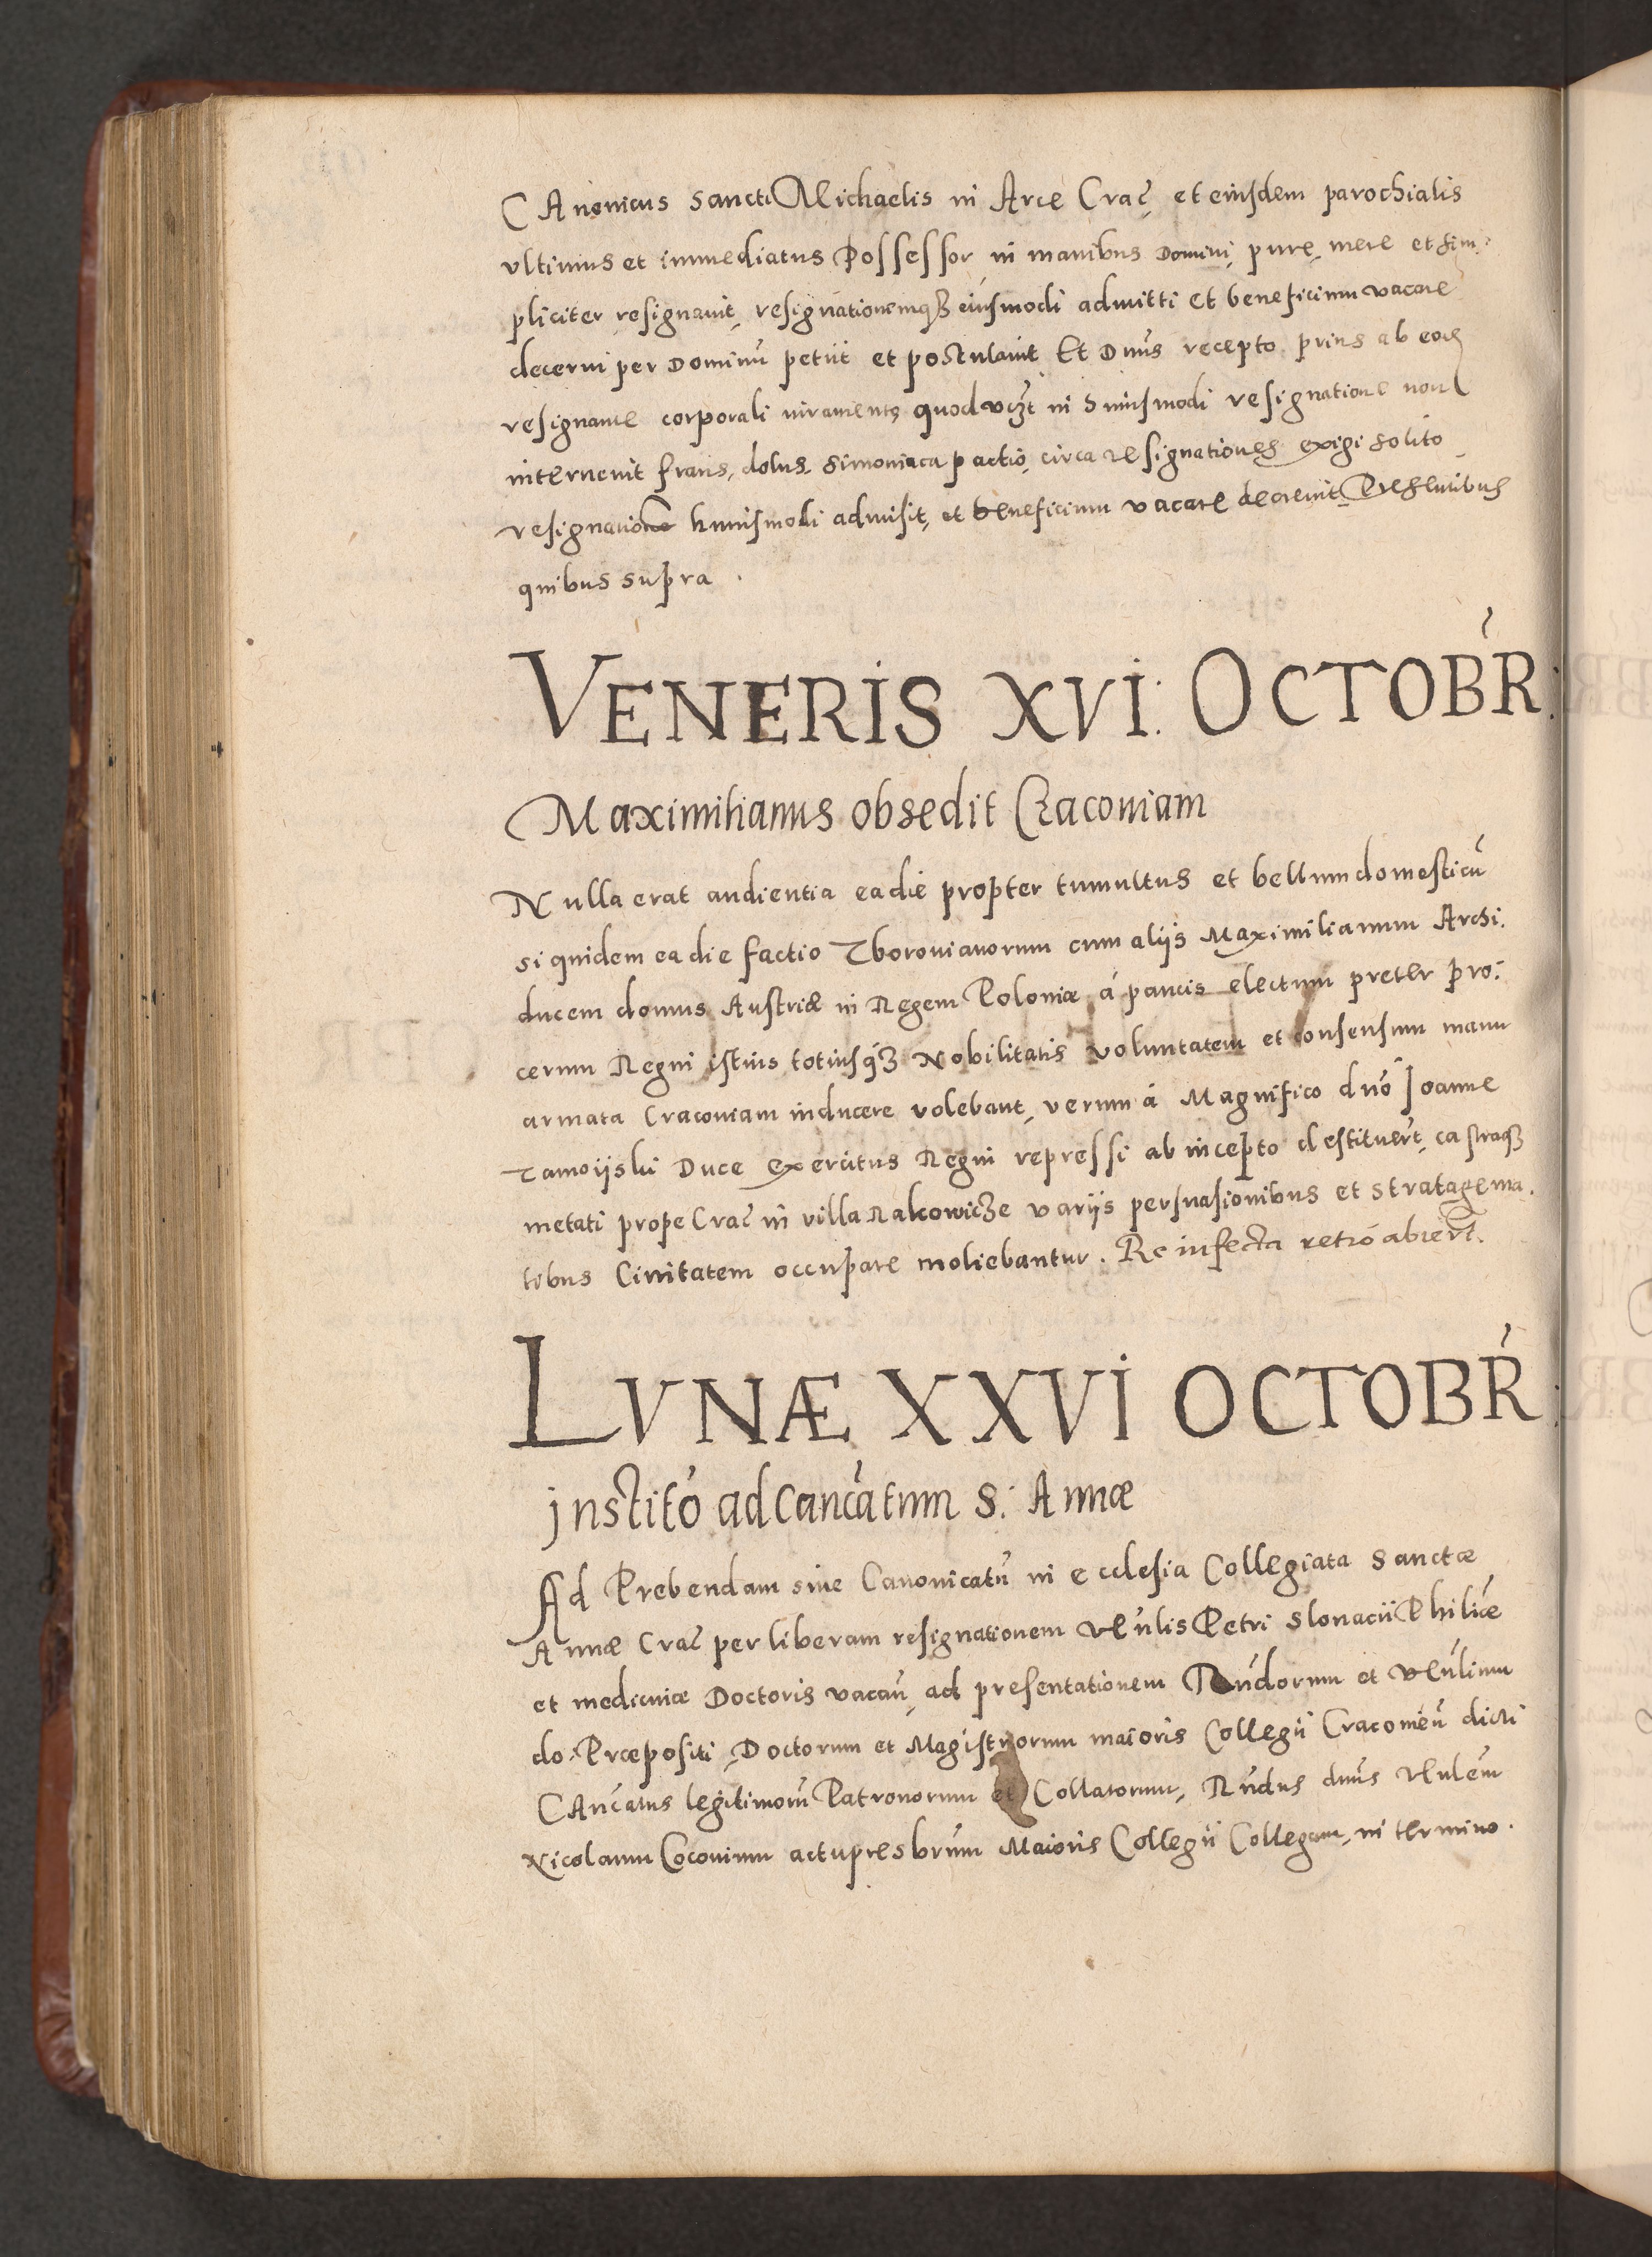 CAnonicus Sancti Michaelis in Arce Crac̃, et eiusdem parochialis
vltimus et immediatus Possessor in manibus Domini, pure, mere et sim:
pliciter resignauit, resignationemq̃ȝ eiusmodi admitti et beneficium vacare
decerni per Dominũ petiit et postulauit Et Dnũs recepto prius ab eod
resignante corporali iuramento quod vcȝt in huiusmodi resignatione non
interuenit fraus, dolus, simoniaca pactio, circa resignationes exigi solito
resignatione huiusmodi admisit, et beneficium vacare decreuit Presentibus
quibus supra.
VENERIS XVI: OCTOBR̃:
Maximilianus obsedit Cracoviam
Nulla erat audientia ea die propter tumultus et bellum domesticũ
siquidem ea die factio Zborouianorum cum alijs Maximilianum Archi:
ducem domus Austriæ in Regem Poloniæ á paucis electum preter pro:
cerum Regni istius totiusq́ȝ Nobilitatis voluntatem et consensum manu
armata Cracouiam inducere volebant, verum á Magnifico dnõ Joanne
Zamoijski Duce exercitus Regni repressi ab incepto destituert̃, castraqȝ
metati prope Crac̃ in villa Rakowicȝe varijs persuasionibus et stratagema:
tibus Ciuitatem occupare moliebantur. Re infecta retró abiert̃.
LVNÆ XXVI OCTOBR̃:
Jnstitõ ad Cancãtum S: Annæ
Ad Prebendam siue Canonicatũ in ecclesia Collegiata Sanctæ
Annæ Crac̃ per liberam resignationem Vẽnlis Petri Slonacii Philiæ̃
et medicinæ Doctoris vacañ, ad presentationem Rñdorum et Vẽnlium
do: Præpositi, Doctorum et Magistrorum maioris Collegii Cracouieñ dicti
CAnc̃atus legitimorũ Patronorum et Collatorum, Rñdus dnũs Vẽnlem
Nicolaum Coconium actu presbr̃um Maioris Collegii Collegam, in termino.